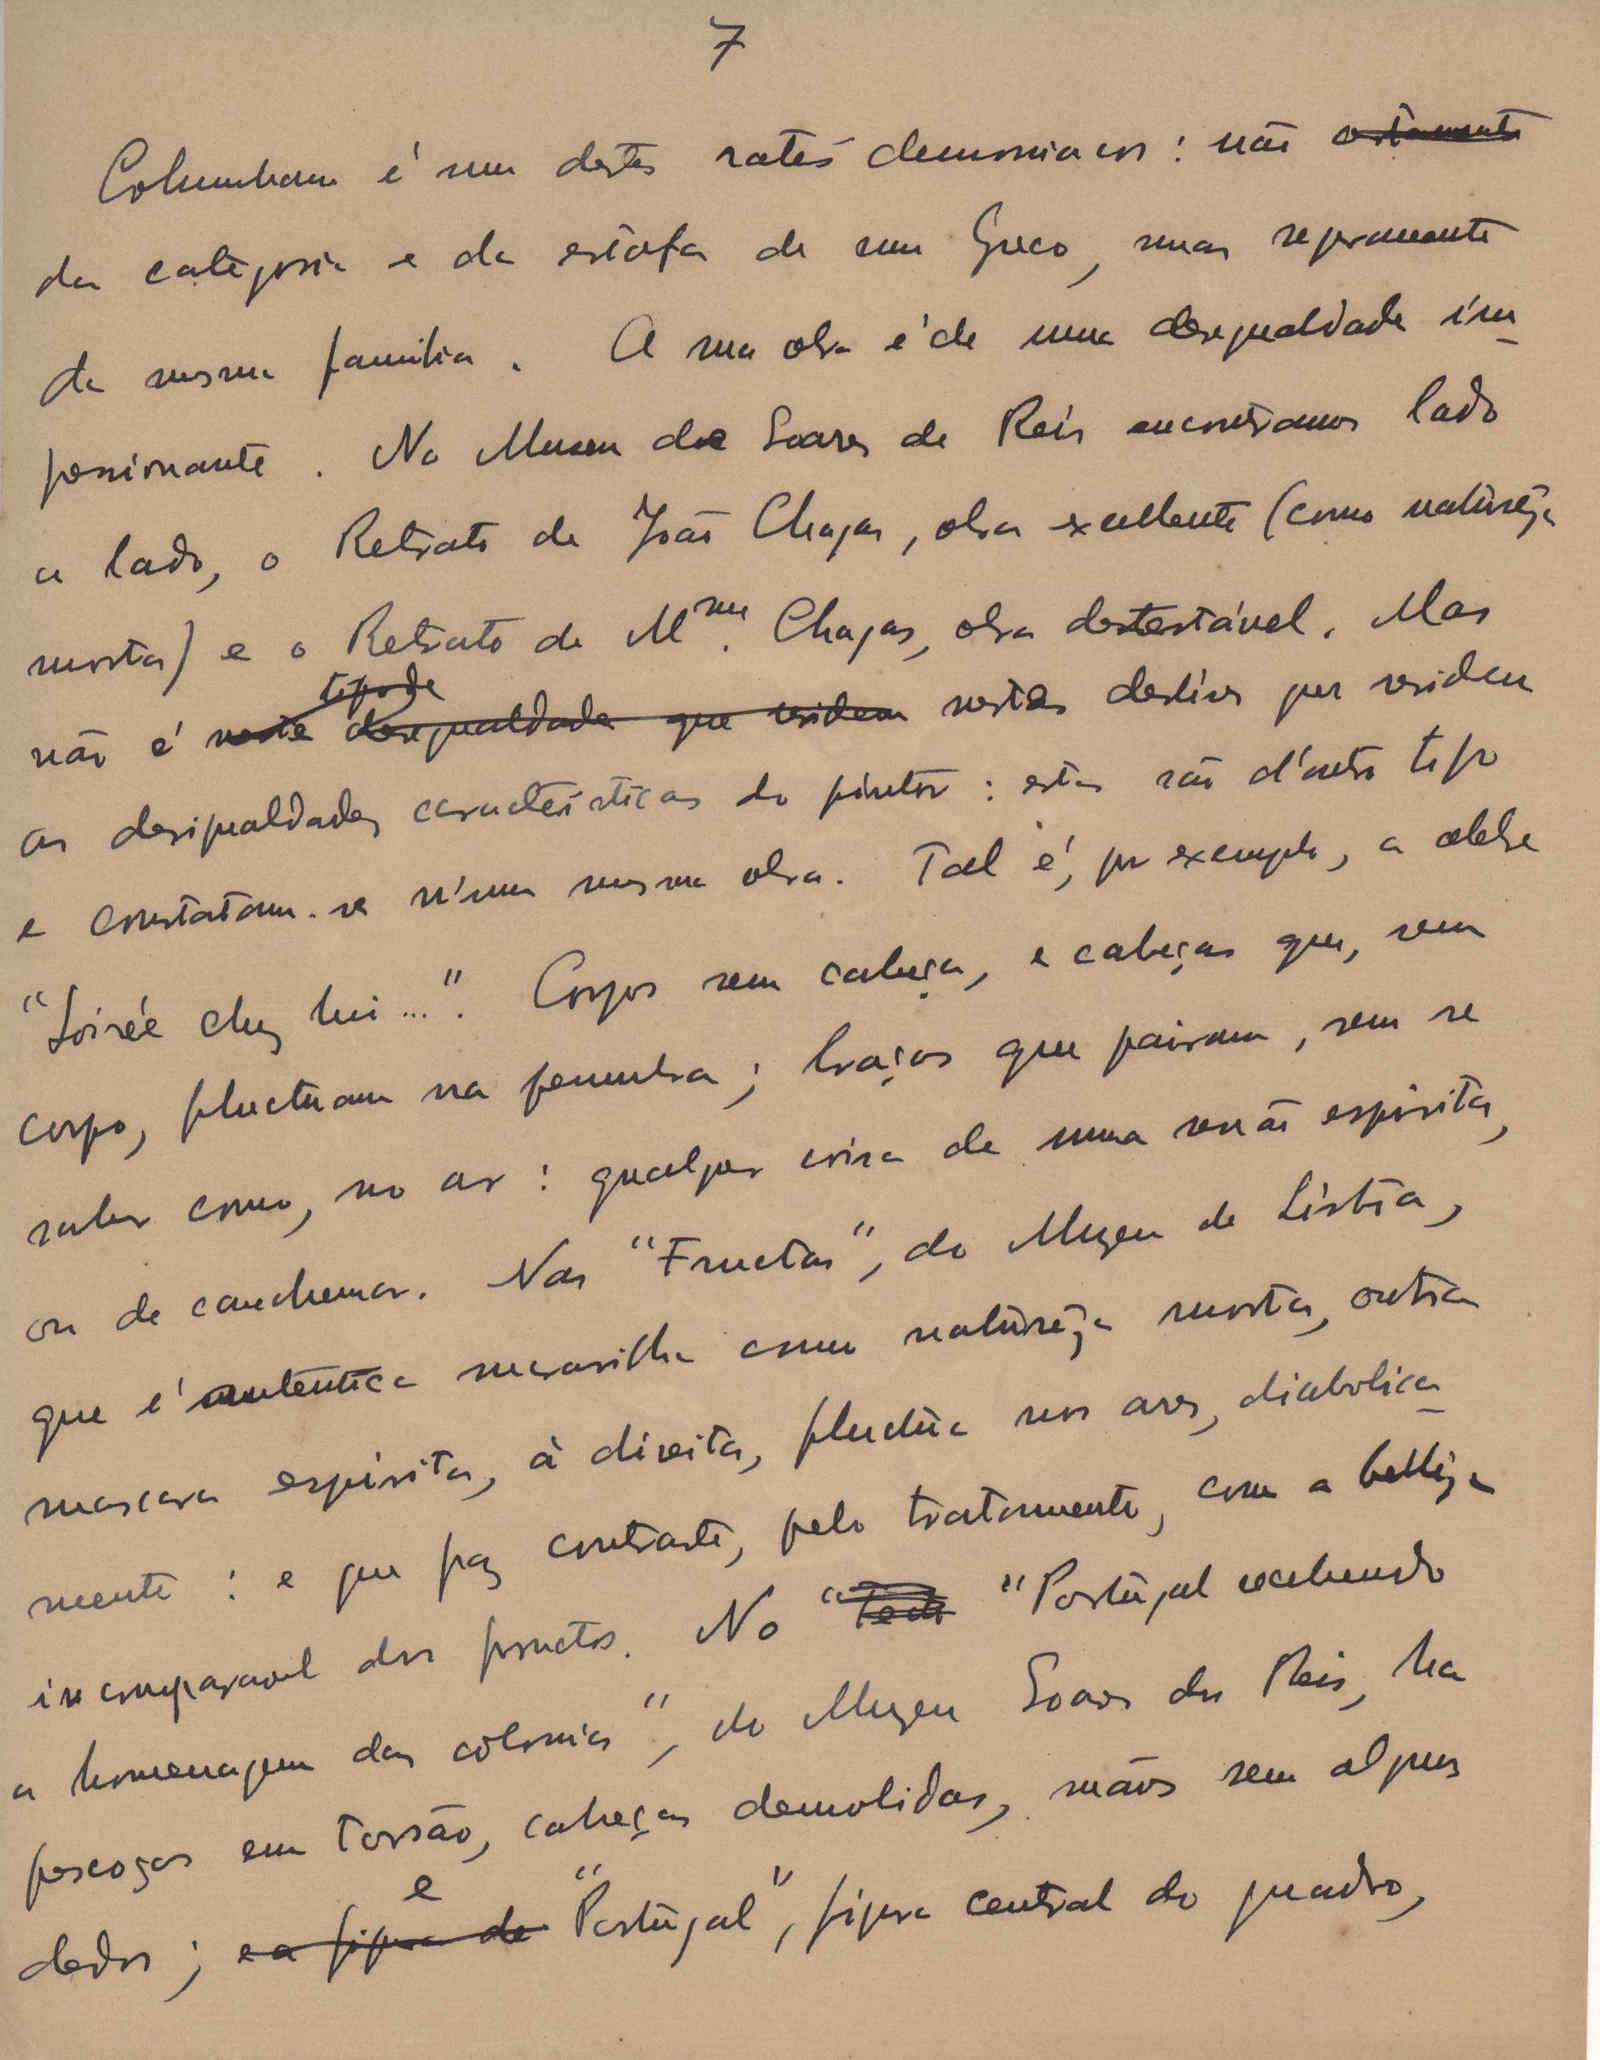 7
Columbano é um destes ratés demoniacos: não
da categoria e da estofa de um Greco, mas seguramente
da mesma familia. A sua obra é de uma desegualdade im-
pressionante. No Museu de Soares de Reis encontramos lado
a lado, o Retrato de João Chagas, obra excellente (como naturêza
morta) e o Retrato de Mme. Chagas, obra detestável. Mas
tipo de
não é neste desegualdade que residem nestes deslises que residem
as desigualdades caracteristicas do pintor: estas são d'outro tipo
e constatam-se n'uma mesma obra. Tal é, por exemplo, a celebre
"Soirée chez lui...". Corpos sem cabeça, e cabeças que, sem
corpo, fluctuam na penumbra; braços que pairam, sem se
saber como, no ar: qualquer coisa de uma sessão espirita,
ou de cauchemar. Nas "Fructas", do Muzeu de Lisbôa,
que é autêntica maravilha como naturêza morta, outra
mascara espirita, à direita, fluctúa nos ares, diabolica-
mente: e que faz contraste, pelo tratamento, com a bellêza
incomparavel dos fructos. No "Portugal recebendo
a homenagem das colonias", do Muzeu Soares dos Reis, ha
pescoços em torsão, cabeças demolidas, mãos sem alguns
e
dedos; e a figura de "Portugal", figura central do quadro,